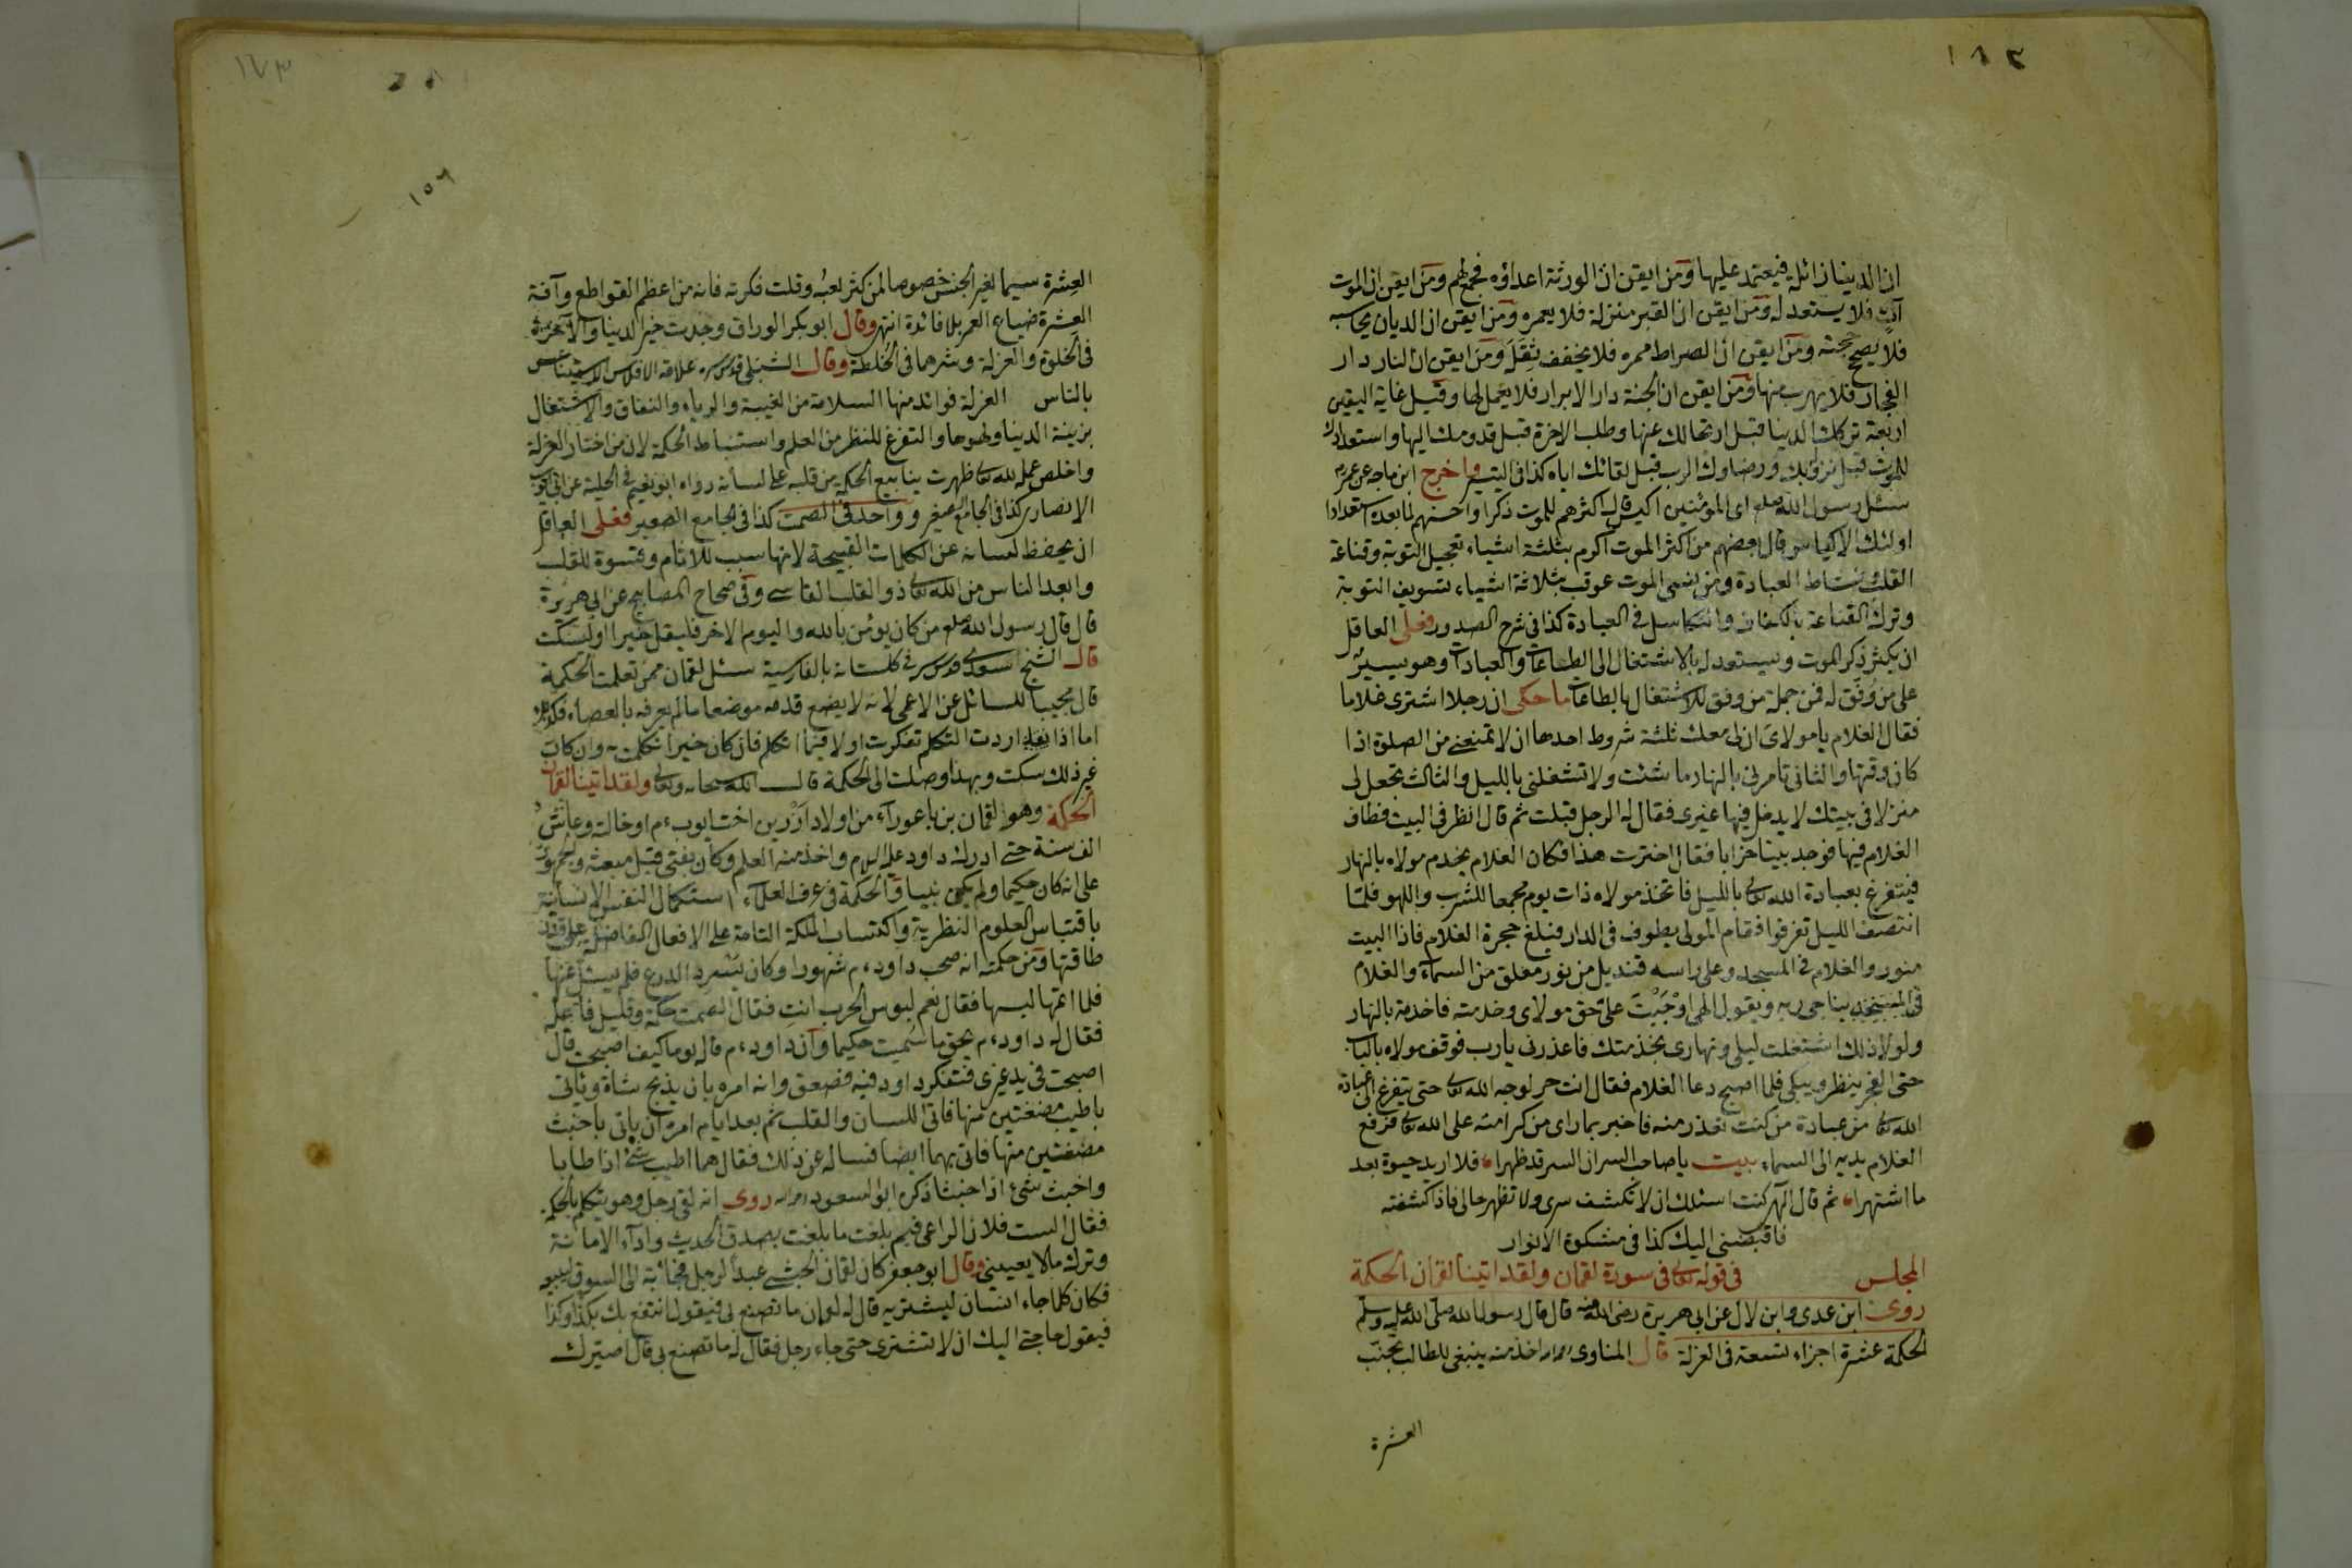 ١٨٢
ان الدنيا زائلة فيعتمد عليها ومن ايقن ان الورثة اعداؤه فجمع لهم ومن ايقن ان الموت
آت فلا يستعد له ومن ايقن ان القبر منزلة فلا يعمره ومن ايقن ان الديان يحاسبه
فلا يصح حجته ومن ايقن ان الصراط ممره فلا يخفف ثقله ومن ايقن ان النار دار
الفجار فلا يهرب منها ومن ايقن ان الجنة دار الابرار فلا يعمل لها وقيل غاية اليقين
اربعة ترك الدنيا قبل ارتحالك عنها وطلب الاخرة قبل قدومك اليها واستعدادك
للموت قبل نزوله بك ورضاؤك الرب قبل لقائك اياه كذا في واخرج ابن ماجه عن عمر
سئل رسول الله صلعم اى المؤمنين اكيس قال اكثرهم للموت ذكرا واحسنهم لما بعده استعدادا
اولئك الاكياس وقال بعضهم من اكثر الموت اكرم بثلثة اشياء تعجيل التوبة وقناعة
القلب ونشاط العبادة ومن نسى الموت عوقب بثلاثة اشياء تسويف التوبة
وترك القناعة بالكفاف والتكاسل في العبادة كذا في شرح الصدور فعلى العاقل
ان يكثر ذكر الموت ويستعد له بالاشتغال الى الطاعات والعبادات وهو يسير
على من وفق له فمن جملة من وفق للاشتغال بالطاعات ما حكى ان رجلا اشترى غلاما
فقال الغلام يا مولاى ان لى معك ثلثة شروط احدها ان لا تمنعنى من الصلوة اذا
كان وقتها والثانى تامرنى بالنهار ما شئت ولا تشغلنى بالليل والثالث تجعل لى
منزلا في بيتك لا يدخل فيها غيرى فقال له الرجل قبلت ثم قال انظر في البيت فطاف
الغلام فيها فوجد بيتا خرابا فقال اخترت هذا فكان الغلام يخدم مولاه بالنهار
فيتفرغ بعبادة الله تعالى بالليل فاتخذ مولاه ذات يوم مجمعا للشرب واللهو فلما
انتصف الليل تفرقوا فقام المولى يطوف في الدار فبلغ حجرة الغلام فاذا البيت
منور والغلام في المسجد وعلى راسه قنديل من نور معلق من السماء والغلام
في يناجى ربه ويقول الهى اوجبت على حق مولاى وخدمته فاخدمه بالنهار
ولولا ذلك اشتغلت ليلى ونهارى بخدمتك فاعذرنى يارب فوقف مولاه بالباب
حتى الفجر ينظر ويبكى فلما اصبح دعا الغلام فقال انت حر لوجه الله تعالى حتى يتفرغ الى عبادة
الله تعالى من عبادة من كنت تعذر منه فاخبر بما راى من كرامته على الله تعالى فرفع
الغلام يديه الى السماء بيت يا صاحب السر ان السر قد ظهرا، فلا اريد حيوة بعد
ما اشتهرا، ثم قال الهى كنت اسئلك ان لا تكشف سرى ولا تظهر حالى فاذا كشفته
فاقبضنى اليك كذا في مشكوة الانوار
المجلس في قوله تعالى في سورة لقمان ولقد اتينا لقمان الحكمة
روى ابن عدى وابن لال عن ابى هريرة رضى الله عنه قال قال رسول الله صلى الله عليه وسلم
الحكمة عشرة اجزاء تسعة في العزلة قال المناوى اخذ منه ينبغى للطالب تجنب
العشرة
١٧٣
١٥٦
العشرة سيما لغير الجنس خصوصا لمن كثر لعبه وقلت فكرته فانه من اعظم القواطع وآفة
العشرة ضياع العمر بلا فائدة انتهى وقال ابو بكر الوراق وجدت خير الدنيا والآخرة
في الخلوة والعزلة وشرهما في الخلطة وقال الشبلى قدس سره علامة الافلاس الاستيناس
بالناس العزلة فوائد منها السلامة من الغيبة والرياء والنفاق والاشتغال
بزينة الدنيا ولهوها والتفرغ للنظر من العلم واستنباط الحكمة لان من اختار العزلة
واخلص عمله لله تعالى ظهرت ينابيع الحكمة من قلبه على لسانه رواه ابو نعيم في الحلية عن ابى ايوب
الانصارى كذا في الجامع الصغير وواحد في الصمت كذا في الجامع الصغير فعلى العاقل
ان يحفظ لسانه عن الكلمات القبيحة لانها سبب للاثام وقسوة للقلب
وابعد الناس من الله تعالى ذو القلب القاسى وفي صحاح المصابيح عن ابى هريرة
قال قال رسول الله صلعم من كان يؤمن بالله واليوم الاخر فليقل خيرا او ليسكت
قال الشيخ سعدى قدس سره في كلستانه بالفارسية سئل لقمان ممن تعلمت الحكمة
قال مجيبا للسائل عن الاعمى لانه لا يضع قدمه موضعا ما لم يعرفه بالعصا،
اما اذا اردت التكلم تفكرت اولا فيما اتكلم فان كان خيرا تكلمت به وان كان
غير ذلك سكت وبهذا وصلت الى الحكمة قال الله سبحانه وتعالى ولقد اتينا لقمان
الحكمة وهو لقمان بن باعوراء من اولاد آزر بن اخت ايوب ءم او خالته وعاش
الف سنة حتى ادرك داود عليه السلام واخذ منه العلم وكان يفتى قبل مبعثه والجمهور
على انه كان حكيما ولم يكن نبيا والحكمة في عرف العلماء استكمال النفس الانسانية
باقتباس العلوم النظرية واكتساب الملكة التامة على الافعال الفاضلة على قدر
طاقتها ومن حكمته انه صحب داود ءم شهورا وكان يسرد الدرع فلم يسئل عنها
فلما اتمها لبسها فقال نعم لبوس الحرب انت فقال الصمت حكمة وقليل فاعله
فقال له داود ءم بحق ما سميت حكيما وان داود ءم قال له يوما كيف اصبحت قال
اصبحت في يد غيرى فتفكر داود فيه فصعق وانه امره بان يذبح شاة وياتى
باطيب مضغتين منها فاتى اللسان والقلب ثم بعد ايام امره ان ياتى باخبث
مضغتين منها فاتى بهما ايضا فساله عن ذلك فقال هما اطيب شئ اذا طابا
واخبث شئ اذا خبثا ذكره ابو السعود روى انه لقى رجل وهو يتكلم بالحكمة
فقال الست فلان الراعى فبم بلغت ما بلغت بصدق الحديث واداء الامانة
وترك ما لا يعنينى وقال ابو جعفر كان لقمان الحبشى عبدا لرجل فجاء به الى السوق ليبيعه
فكان كلما جاء انسان ليشتريه قال له لقمان ما تصنع بى فيقول انتفع بك بكذا وكذا
فيقول حاجتى اليك ان لا تشترى حتى جاء رجل فقال له ما تصنع بى قال اصيرك